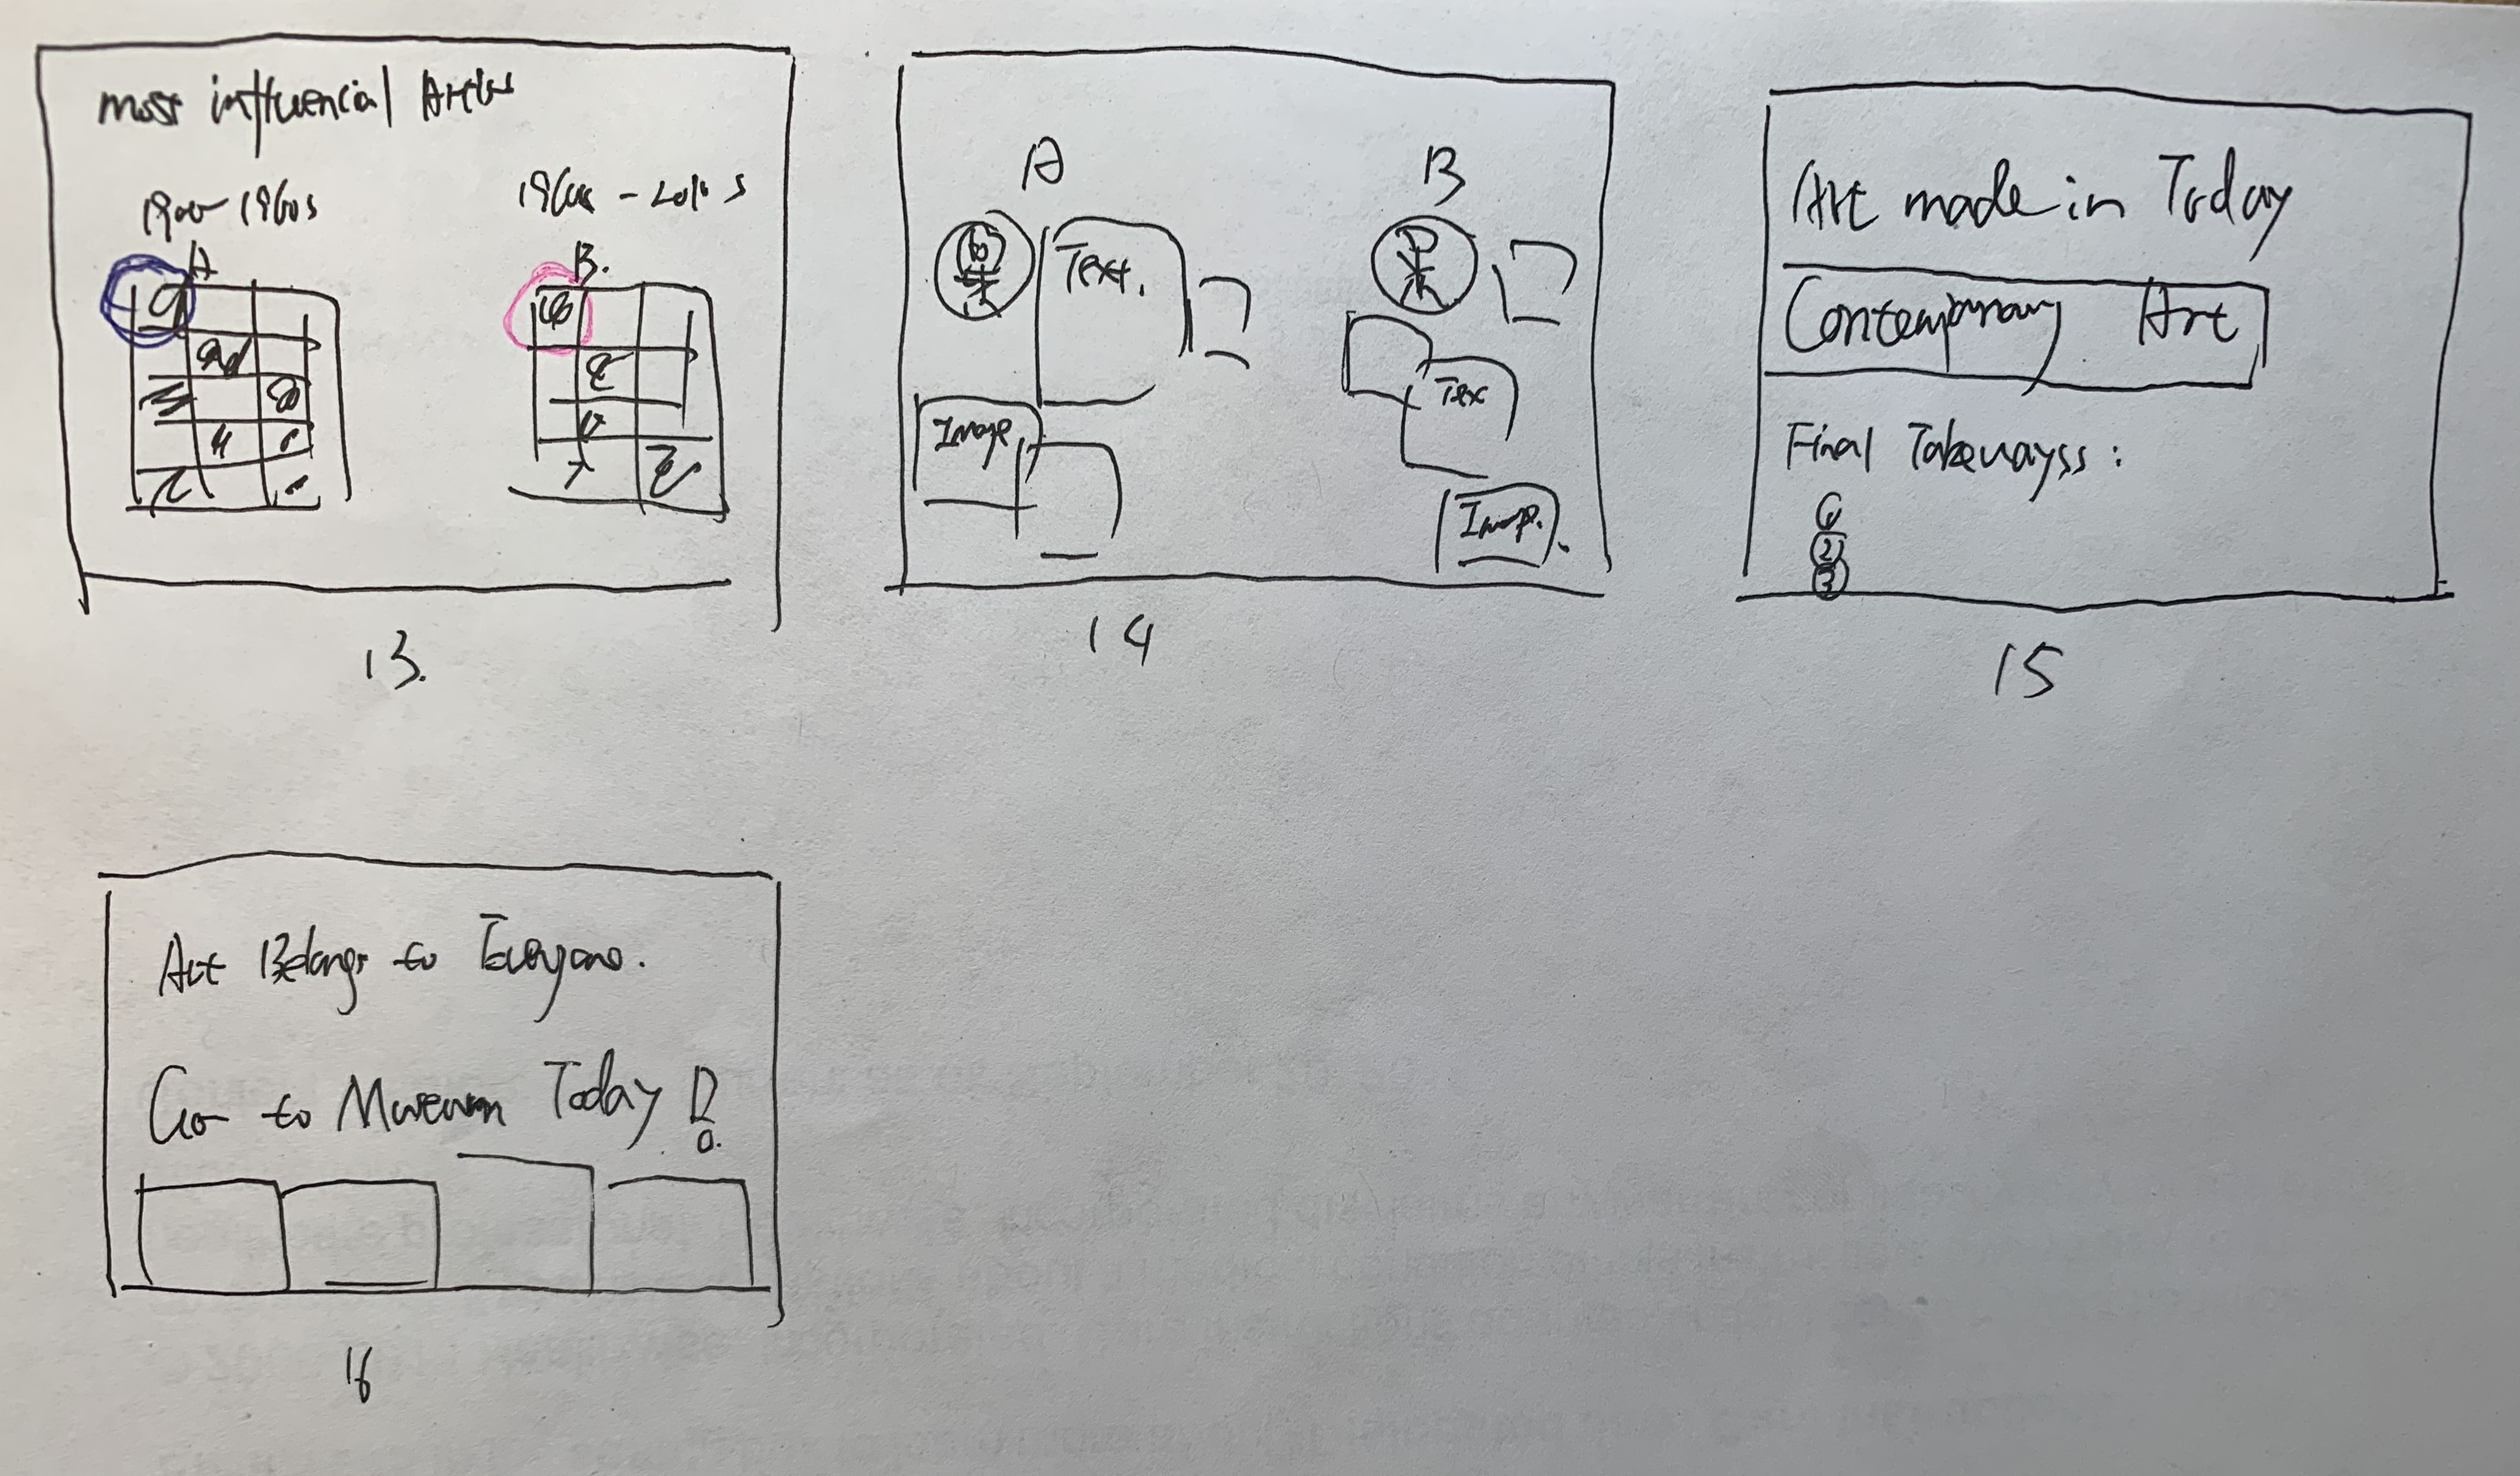 most influencial Artists
1900-1960s
1960s - 2010s
A
B.
13.
A
B
Text.
Text
Image
Image.
14
Art made in Today
Contemporary Art
Final Takewayss:
1
2
3
15
Art Belongs to Everyone.
Go to Museum Today !
16